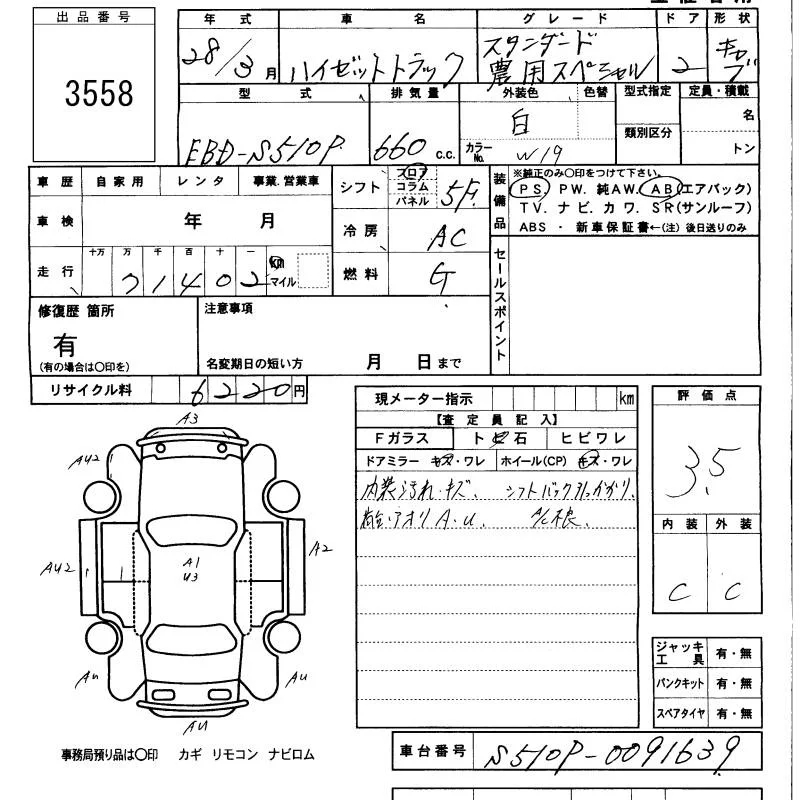 出品番号
3558
年式
28/3月
車名
ハイゼットトラック
グレード
スタンダード
農用スペシャル
ドア
2
形状
キャブ
型式
EBD-S510P
排気量
660 c.c.
外装色
白
色替
カラーNo.
W19
型式指定
類別区分
定員・積載
名
トン
車歴 自家用 レンタ 事業.営業車
車検 年 月
走行 十万 万 千 百 十 一
71402 km マイル
シフト フロア コラム パネル 5F
冷房 AC
燃料 G
装備品
※純正のみ〇印をつけて下さい。
PS PW. 純AW. AB(エアバック)
TV. ナビ. カワ. SR(サンルーフ)
ABS ・ 新車保証書←(注) 後日送りのみ
セールスポイント
修復歴 箇所
有
(有の場合は〇印を)
注意事項
名変期日の短い方 月 日まで
リサイクル料 6220円
現メーター指示 km
【査定員記入】
Fガラス ト石 ヒビワレ
ドアミラー キズ・ワレ ホイール(CP) キズ・ワレ
内装汚れ・キズ. シフトバック引っかかり.
アオリ A.U.
評価点
3.5
内装 外装
C C
ジャッキ工具 有・無
パンクキット 有・無
スペアタイヤ 有・無
A3
AU2
A2
A1
U3
AU2
AU
AU
AU
事務局預り品は〇印 カギ リモコン ナビロム
車台番号 S510P-0091639